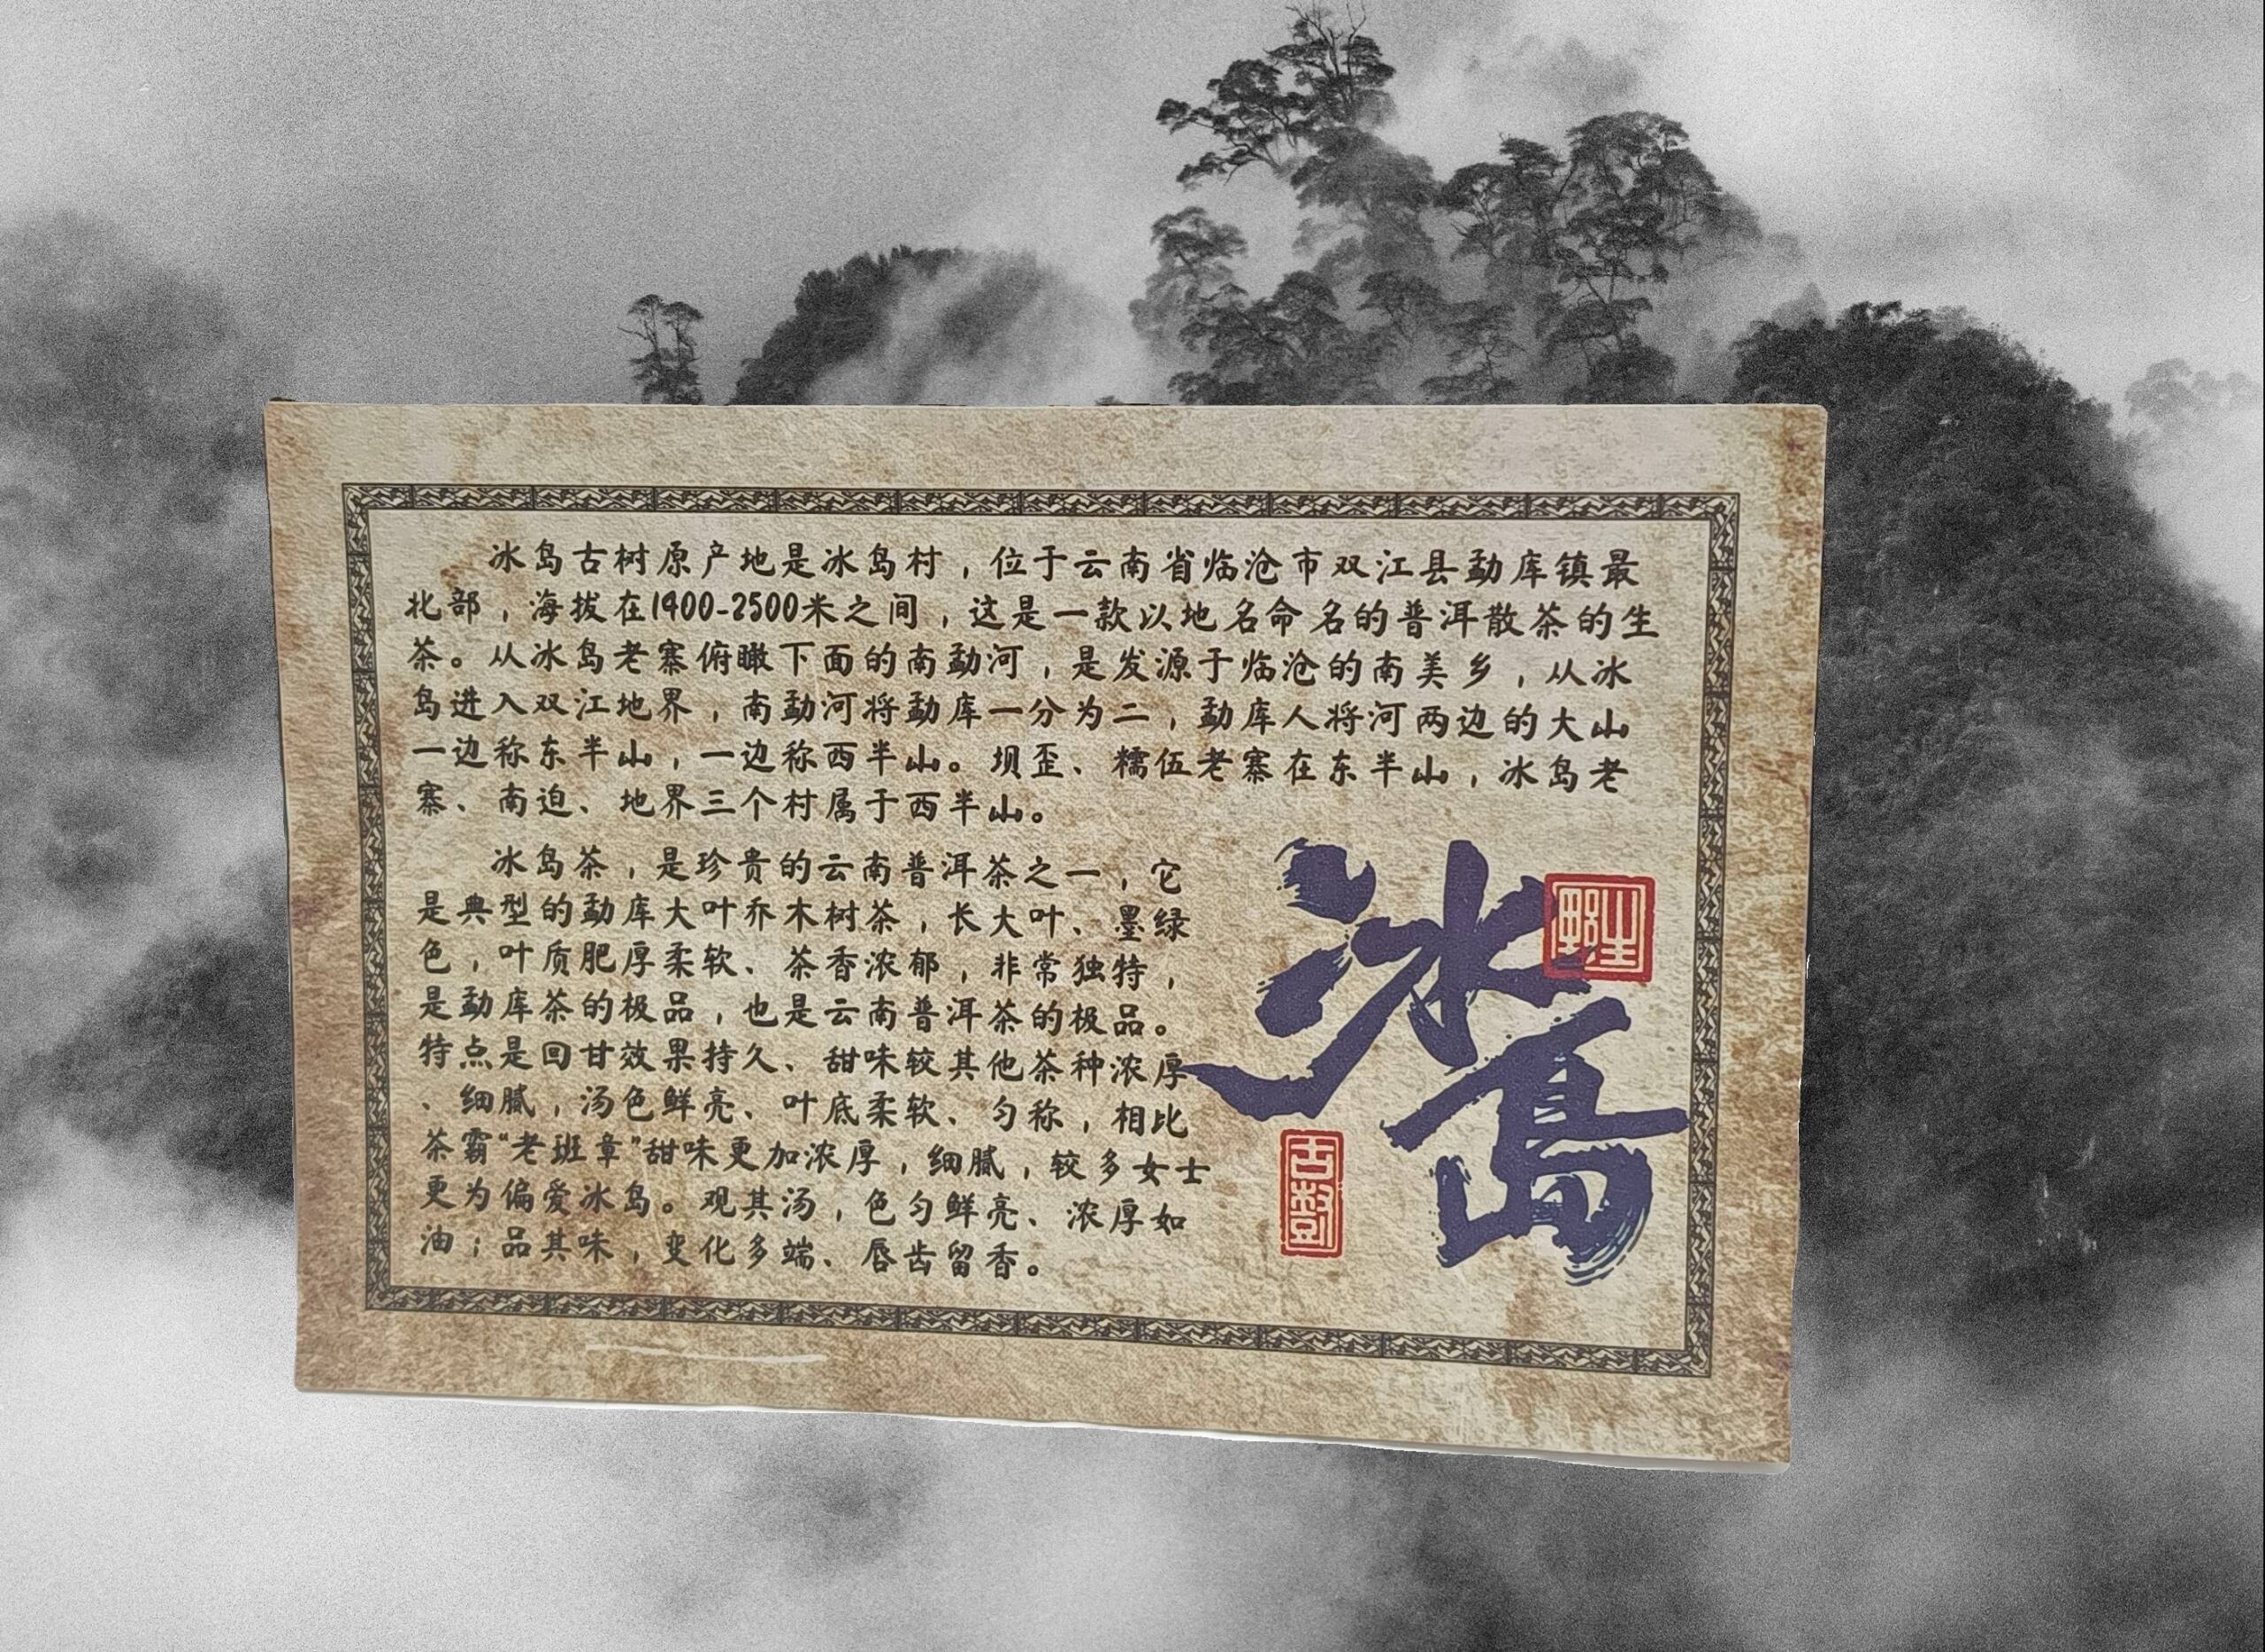 冰岛古树原产地是冰岛村，位于云南省临沧市双江县勐库镇最
北部，海拔在1400-2500米之间，这是一款以地名命名的普洱散茶的生
茶。从冰岛老寨俯瞰下面的南勐河，是发源于临沧的南美乡，从冰
岛进入双江地界，南勐河将勐库一分为二，勐库人将河两边的大山
一边称东半山，一边称西半山。坝歪、糯伍老寨在东半山，冰岛老
寨、南迫、地界三个村属于西半山。
冰岛茶，是珍贵的云南普洱茶之一，它
是典型的勐库大叶乔木树茶，长大叶、墨绿
色，叶质肥厚柔软、茶香浓郁，非常独特，
是勐库茶的极品，也是云南普洱茶的极品。
特点是回甘效果持久、甜味较其他茶种浓厚
、细腻，汤色鲜亮、叶底柔软、匀称，相比
茶霸“老班章”甜味更加浓厚，细腻，较多女士
更为偏爱冰岛。观其汤，色匀鲜亮、浓厚如
油；品其味，变化多端、唇齿留香。
冰岛
野生
古树